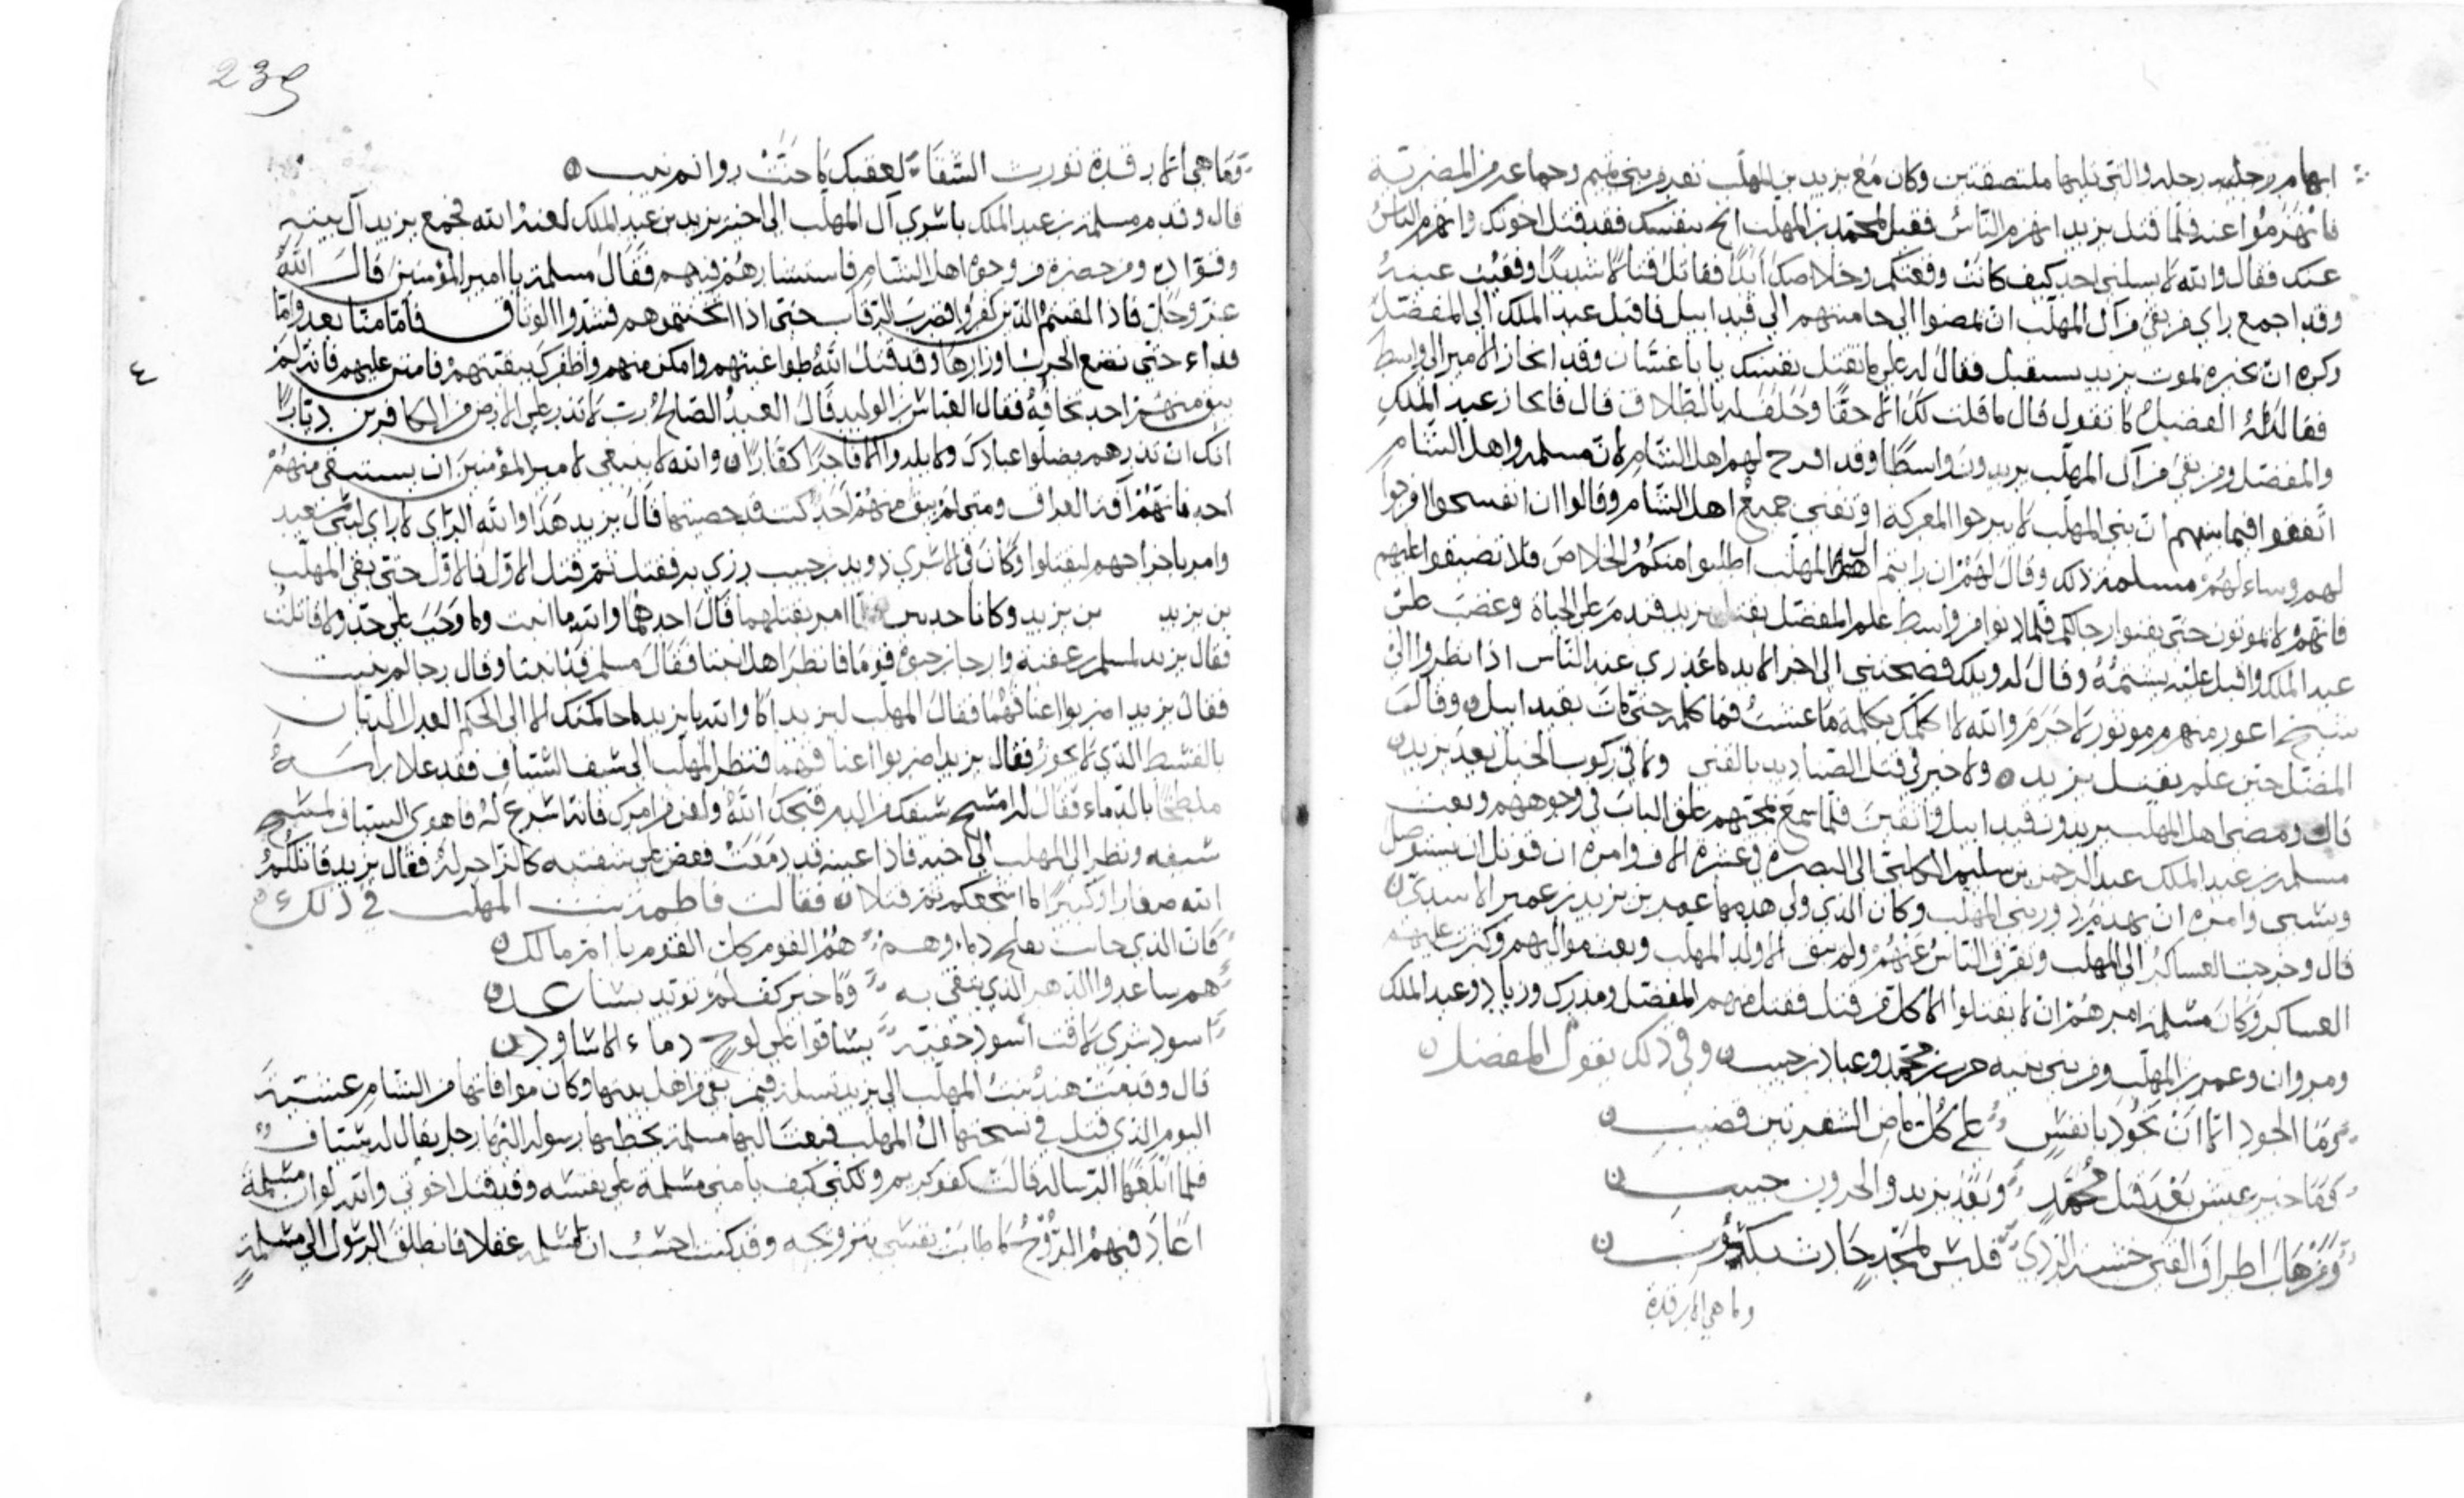 ابهام رجليه رجله والتي تليها ملتصقتين وكان مع يزيد بن المهلب نفر من بني تميم وجماعة من المضرية
فانهزموا عنه فلما قتل يزيد انهزم الناس فقيل لمحمد بن المهلب انج بنفسك فقد قتل اخوتك وانهزم الناس
عنك فقال والله لا يسلني احد كيف كانت وقعتكم وخلاصك ابدا فقاتل قتالا شديدا وفقئت عينه
وقد اجمع راي من بقي من آل المهلب ان يمضوا الى حاميتهم الى قندابيل فاقبل عبد الملك الى المفضل
وكره ان يخبره بموت يزيد فيستقتل فقال له على ما تقتل نفسك يا با غسان وقد انحاز الامير الى واسط
فقال له المفضل ما تقول قال ما قلت لك الا حقا وحلف له بالطلاق قال فانحاز عبد الملك
والمفضل ومن بقي من آل المهلب يريدون واسطا وقد افرج لهم اهل الشام لان مسلمة واهل الشام
اتفقوا فيما بينهم ان بني المهلب لا يبرحوا المعركة او تفنى جميع اهل الشام وقالوا ان انفسحوا فرجوا
لهم وساء لهم مسلمة ذلك وقال لهم ان رايتم آل المهلب اطلبوا منكم الخلاص فلا تضيقوا عليهم
فانهم لا يموتون حتى يفنوا رجالكم فلما دنوا من واسط علم المفضل بقتل يزيد فندم على الحياة وغضب على
عبد الملك واقبل عليه يشتمه وقال له ويلك فضحتني الى اخر الابد ما عذري عند الناس اذا نظروا الي
شيخ اعور منهزم موتور لا جرم والله لا اكلمك بكلمة ما عشت فما كلمه حتى مات بقندابيل وقال
المفضل حين علم بقتل يزيد ولا خير في قتل الصناديد بالقنى ولا في ركوب الخيل بعد يزيد
قال ومضى اهل المهلب يريدون قندابيل واتقين فلما سمع بمجيئهم غلق الباب في وجوههم وبعث
مسلمة بن عبد الملك عبد الرحمن بن سليم الكلبي الى البصرة في عشرة الاف وامره ان قوتل ان يستوصل
ويسبى وامره ان يهدم دور بني المهلب وكان الذي ولي هدمها عمر بن يزيد بن عمير الاسيدي
قال وخرجت العساكر الى المهلب وتفرق الناس عنهم ولم يبق الا ولد المهلب وبعض مواليهم وكثرت عليهم
العساكر وكان مسلمة امرهم ان لا يقتلوا الا كل من قتل فقتل منهم المفضل ومدرك وزياد وعبد الملك
ومروان وعمر بن المهلب ومن بني بنيه حرب بن محمد وعباد بن حبيب وفي ذلك يقول المفضل
وما الجود الا ان نجود بانفس على كل ماضي الشفرتين قضيب
فما خير عيش بعد قتل محمد وبعد يزيد والحرون حبيب
ومن هاب اطراف القنى خشية الردى فليس لمجد حادث بكسوب
وما هي الا رقدة
239
وما هي الا رقدة تورث الشقا لعقبك ما حنت روائم نيب
قال وقدم مسلمة بن عبد الملك باسرى آل المهلب الى اخيه يزيد بن عبد الملك لعنه الله فجمع يزيد آل بيته
وقواده ومن حضره من وجوه اهل الشام فاستشارهم فيهم فقال مسلمة يا امير المؤمنين قال الله
عز وجل فاذا لقيتم الذين كفروا فضرب الرقاب حتى اذا اثخنتموهم فشدوا الوثاق فاما منا بعد واما
فداء حتى تضع الحرب اوزارها وقد قتل الله طواغيتهم وامكن منهم واظفرك ببقيتهم فامنن عليهم فانه لم
يبق منهم احد تخافه فقال العباس بن الوليد قال العبد الصالح رب لا تذر على الارض من الكافرين ديارا
انك ان تذرهم يضلوا عبادك ولا يلدوا الا فاجرا كفارا والله لا ينبغي لامير المؤمنين ان يستبقي منهم
احد فانهم آفة العراق ومتى لم يبق منهم احد كنت قد حصنتها قال يزيد هذا والله الراي لا راي لي بعد
وامر باخراجهم ليقتلوا وكان في الاسرى دويد بن حبيب رزي به فقتل ثم قتل الاول فالاول حتى بقي المهلب
بن يزيد بن يزيد وكانا حدثين امر بقتلهما قال احدهما والله ما انبت وما وجب علي حد ولا قاتلت
فقال يزيد لمسلم بن عقبة وارجا بن حيوة قوما فانظرا هل انبتا فقال مسلم قد انبتا وقال رجا لم ينبت
فقال يزيد اضربوا اعناقهما فقال المهلب ليزيد اما والله يا يزيد لاحاكمنك الا الى الحكم العدل الديان
بالقسط الذي لا يجور فقال يزيد اضربوا اعناقهما فنظر المهلب الى سيف السياف فقد علا راسه
ملطخا بالدماء فقال له امسح سيفك من الدم قبحك الله ولعن من امرك فانه اسرع له فاهوى السياف ليمسح
سيفه ونظر الى المهلب الى اخيه فاذا عينه قد دمعت فعض على شفتيه كالزاجر له فقال يزيد قاتلكم
الله صغارا وكبارا ما اشجعكم ثم قتلا فقالت فاطمة بنت المهلب في ذلك
فان الذي حانت بفلج دماؤهم هم القوم كل القوم يا ام مالك
هم ساعدوا الدهر الذي يتقى به وما خير كف لم تؤيد بساعد
اسود شرى لاقت اسود خفية تساقوا على لوح دماء الاساود
قال وبعثت هند بنت المهلب الى يزيد تسله فيمن بقي من اهل بيتها وكان موافاتها من الشام عشية
اليوم الذي قتل في صبيحتها آل المهلب فبعث اليها مسلمة يخطبها رسوله اليها رجل يقال له سياف
فلما ابلغها الرسالة قالت كفو كريم ولكن كيف يامنني مسلمة على نفسه وقد قتل اخوتي والله لو ان مسلمة
اعاد فيهم الروح لما طابت نفسي بتزويجه وقد كنت احسب ان لمسلمة عقلا فانطلق الرسول الى مسلمة